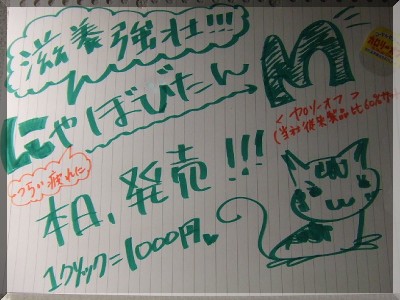 滋養強壮!!!
にゃぼびたん M
<カロリーオフ>
(当社従来製品比60%カット)
つらい疲れに
本日、発売!!!
1クリック=1000円